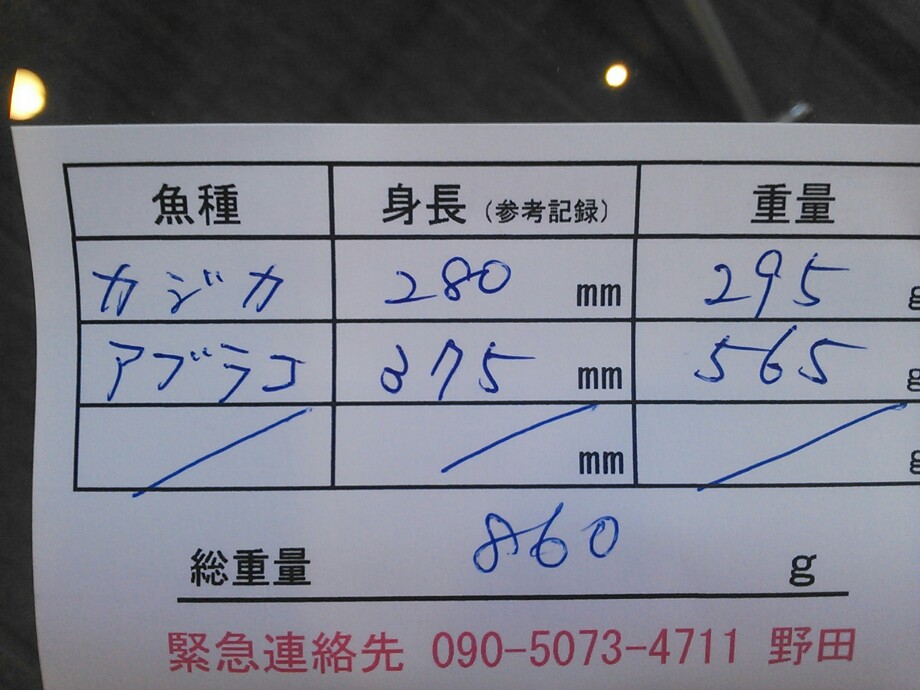 魚種 身長（参考記録） 重量
カジカ 280 mm 295 g
アブラコ 375 mm 565 g
mm g
総重量 860 g
緊急連絡先 090-5073-4711 野田